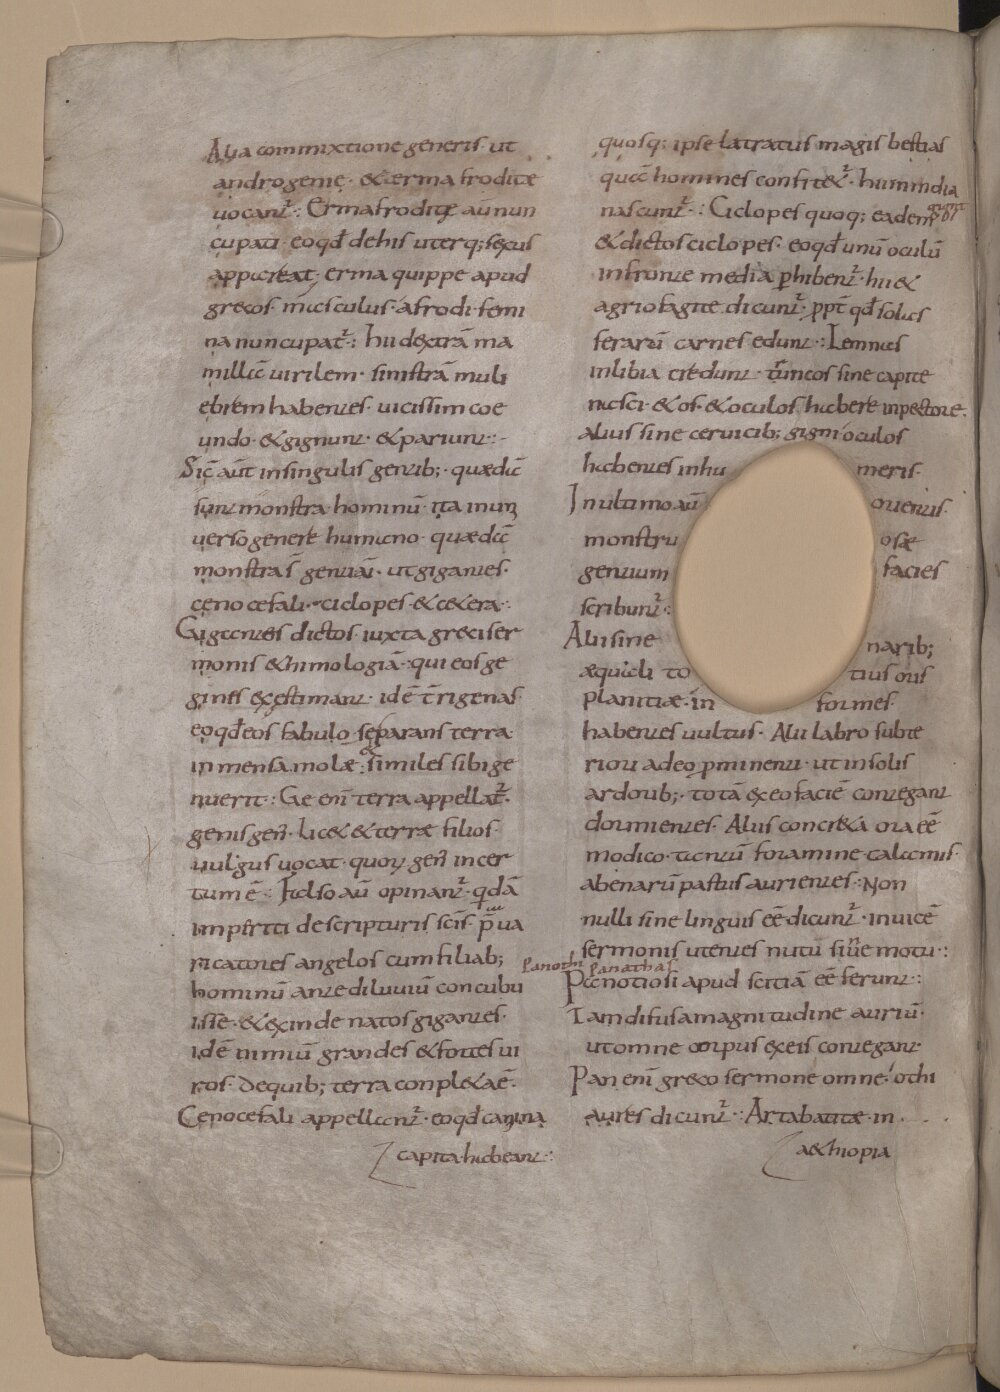 Alia commixtione generis ut
androgenię · & ermafroditæ
uocant᷑ ·: Ermafroditę aū nun
cupati · eo qđ de his uterq; sexus
appareat · erma quippe apud
grecos · masculus · afrodi · femi
na nuncupat᷑ ·: Hii dextrā ma
millā uirilem · sinistrā muli
ebrem habentes · uicissim coe
undo · & gignunt · & pariunt ·:-
Sic̄ aūt in singulis gentib; · quædā
sunt monstra hominū · ita in uni
uerso genere humano · quædā
monstra s̄ gentiū · ut gigantes ·
cenocefali · ciclopes · & cetera ·:
Gigantes dictos iuxta greci ser
monis ethimologiā · qui eos ge
gines existimant · idē t̄rigenas
eo qđ eos fabulo se parans terra
inmensa mole & similes sibi ge
nuerit ·: Ge eni̅ terra appellat᷑ ·
genis gen̄ · licet & terræ filios
uulgus uocat · quoꝝ gen̄ incer
tum ē · Falso aū opinant᷑ · qdā
imperiti de scripturis sc̄is p̄ua
ricatores angelos cum filiab;
hominū ante diluuiū concubu
isse · & exinde natos gigantes ·
idē nimiū grandes & fortes ui
ros · de quib; terra conpleta ē ·
Cenocefali appellant᷑ · eo qđ canina
capita habeant ·:
quosq; ipse latratus magis bestias
quā homines confitet᷑ · hii in india
nascunt᷑ ·: Ciclopes quoq; eadem
gignit
& dictos ciclopes · eo qđ unū oculū
in fronte media ꝑhibent᷑ · hii &
agriofagite dicunt᷑ · ꝓpt̄ qđ solas
ferarū carnes edunt ·: Lemnias
in libia credunt · trūncos sine capite
nasci · & os · & oculos habere in pectore ·
Alius sine ceruicib; gigni oculos
habentes in hu meris ·
In ultimo aū orientis ·
monstru osæ
gentium facies
scribunt᷑ ·
Alii sine narib;
æquali to tius oris
planitiæ · in formes ·
habentes uultus · Alii labro subte
riori adeo ꝓminenti · ut in solis
ardorib; · totā ex eo faciē contegant
dormientes · Aliis concreta ora eē
modico · tantū foramine calamis ·
abenarū pastus aurientes · Non
nulli sine linguis eē dicunt᷑ · inuicē
sermonis utentes nutū siue motu ·:
Panothi Panathas
Panotiosi apud scitiā eē ferunt ·:
Iam difusa magnitudine auriū ·
ut omne corpus ex eis contegant ·
Pan eni̅ greco sermone omne · othi
aures dicunt᷑ ·: Artabatitæ · in
aethiopia